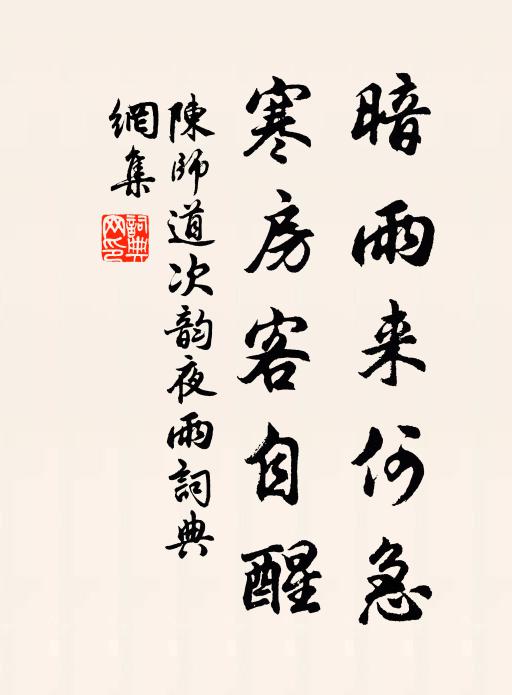 暗雨来何急
寒房客自醒
陳師道次韵夜雨詞典
網集
詞典网印